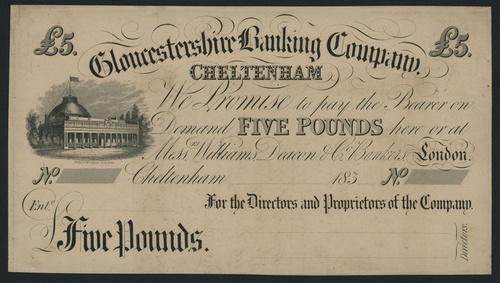 £5. £5.
Gloucestershire Banking Company.
CHELTENHAM
We Promise to pay the Bearer on
Demand FIVE POUNDS here or at
Messrs. Williams, Deacon & Co. Bankers, London.
No. Cheltenham 183 No.
For the Directors and Proprietors of the Company.
Entd.
Five Pounds.
Directors